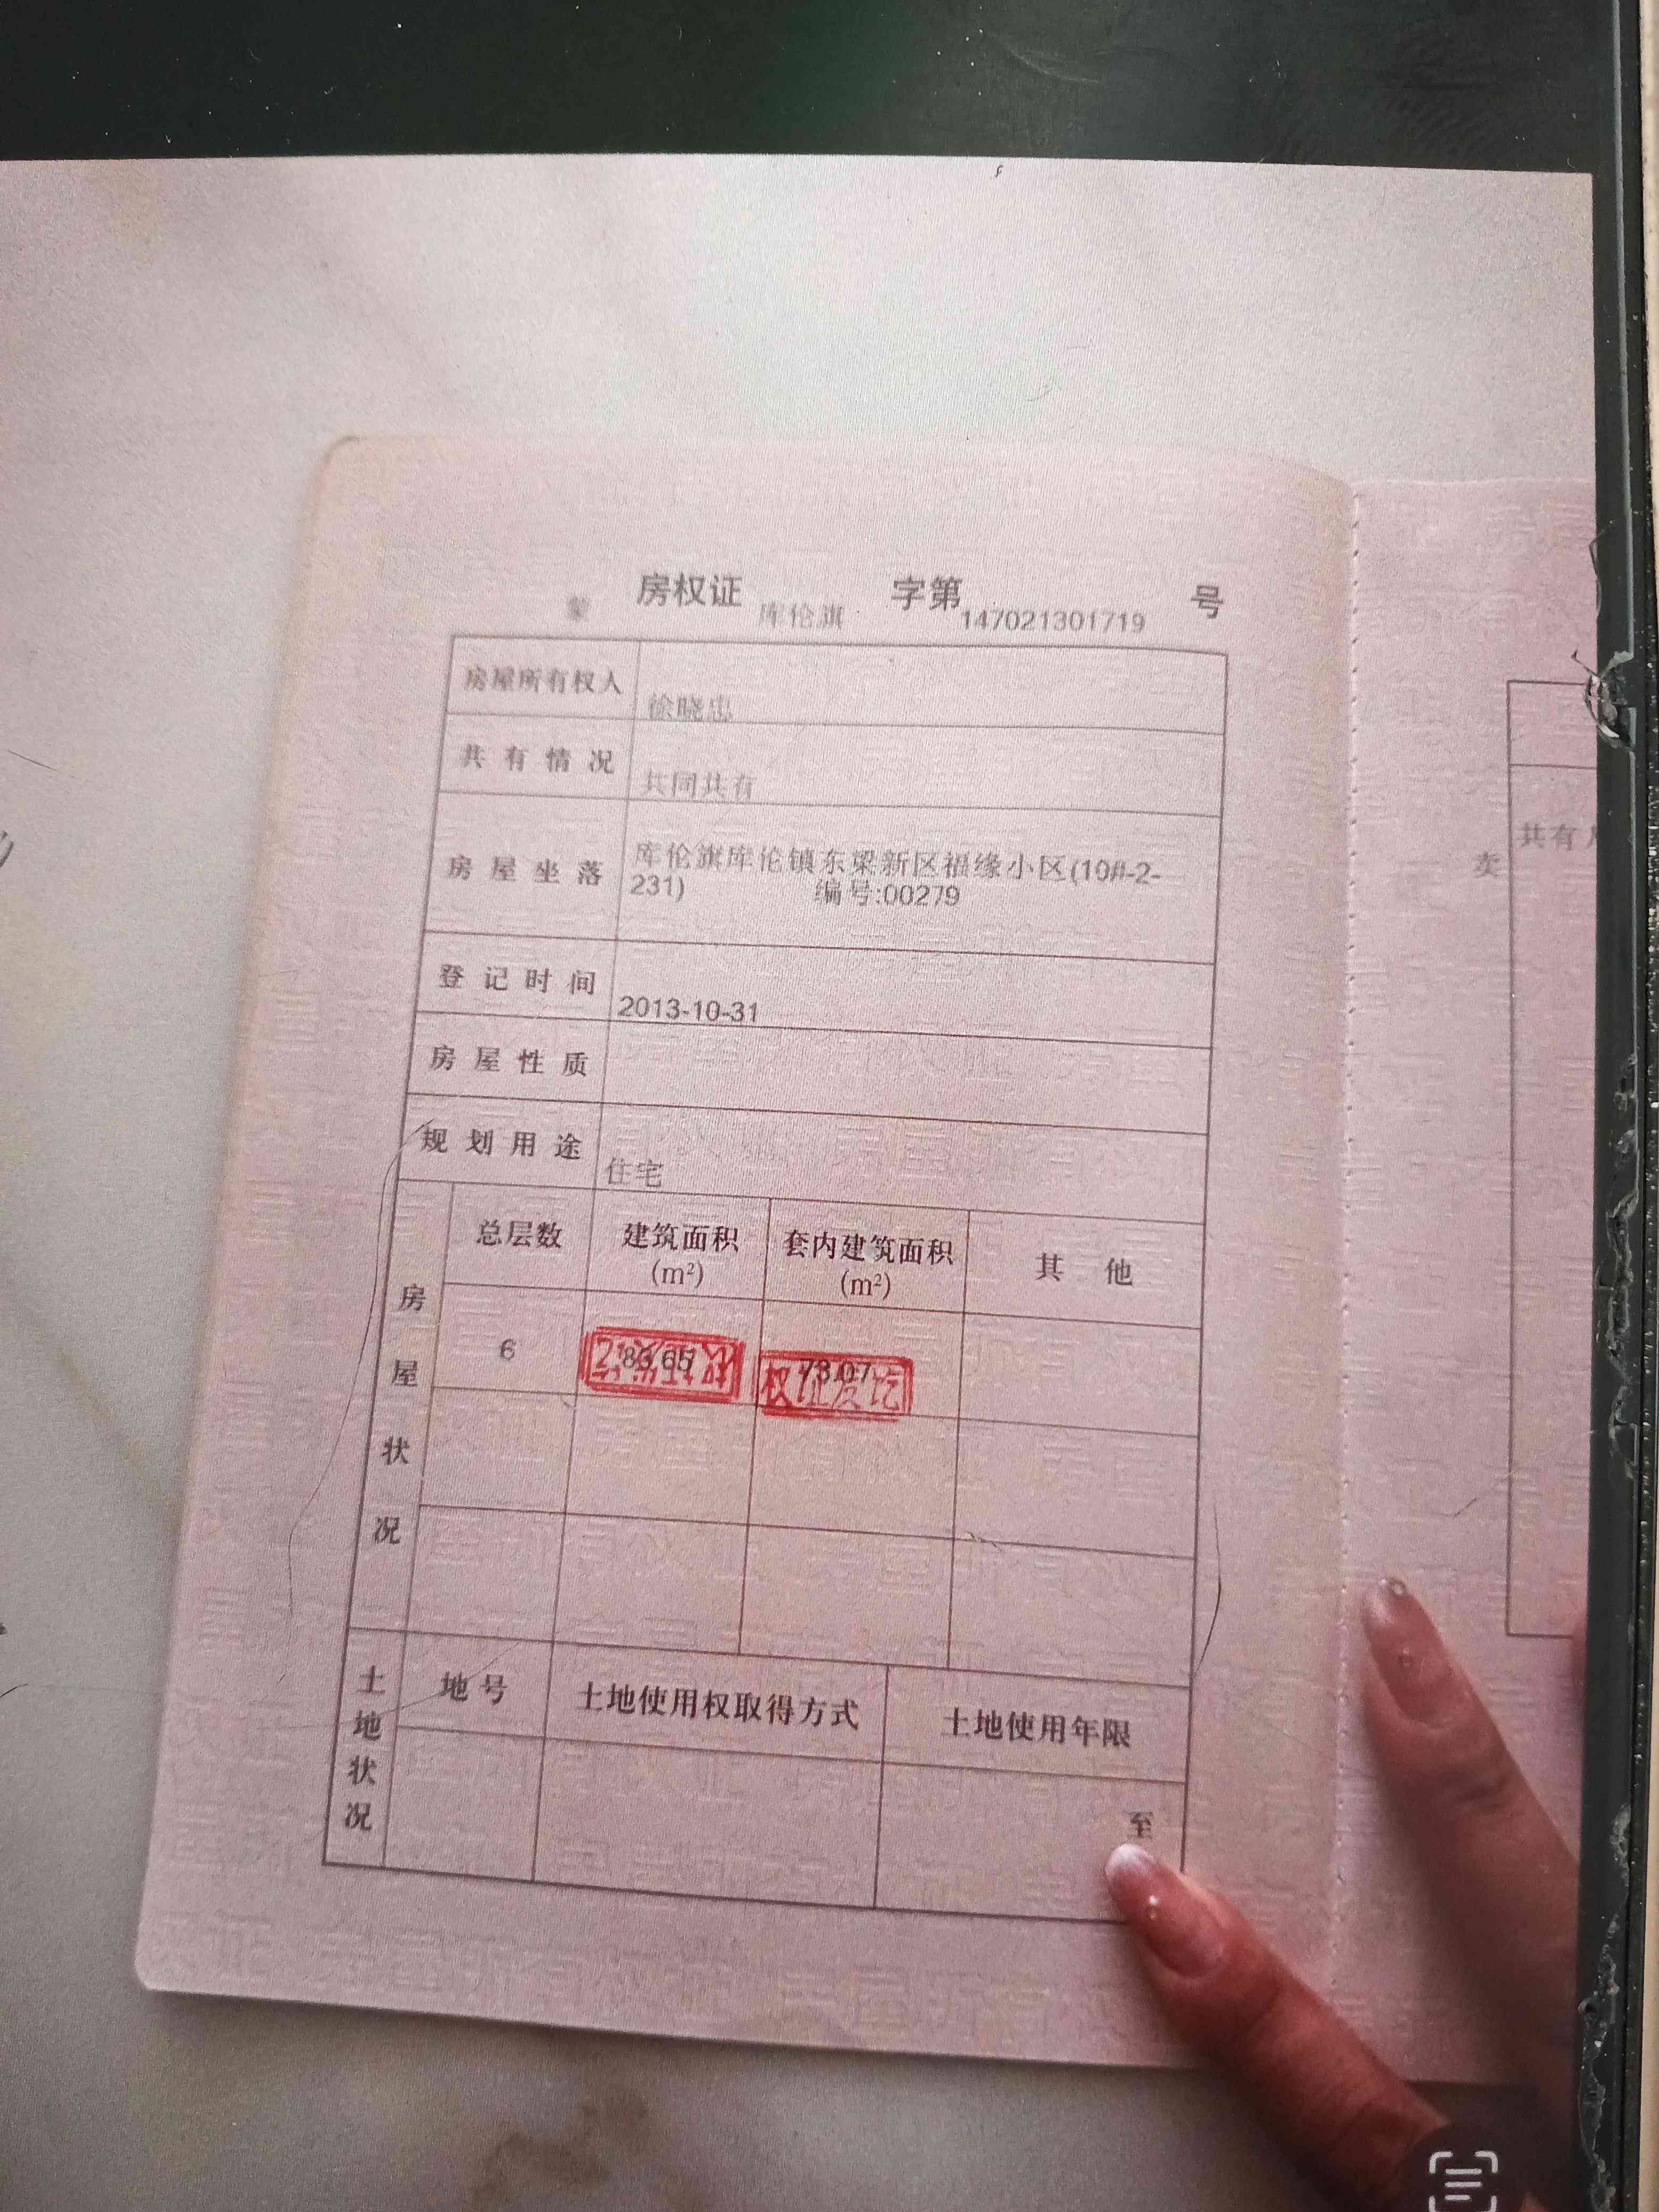 房权证 字第 号
蒙 库伦旗 147021301719
房屋所有权人 徐晓忠
共有情况 共同共有
房屋坐落 库伦旗库伦镇东梁新区福缘小区(10#-2-
231) 编号:00279
登记时间 2013-10-31
房屋性质
规划用途 住宅
房屋状况 总层数 建筑面积(m²) 套内建筑面积(m²) 其他
6 73.07
权证发讫
土地状况 地号 土地使用权取得方式 土地使用年限
至
共有